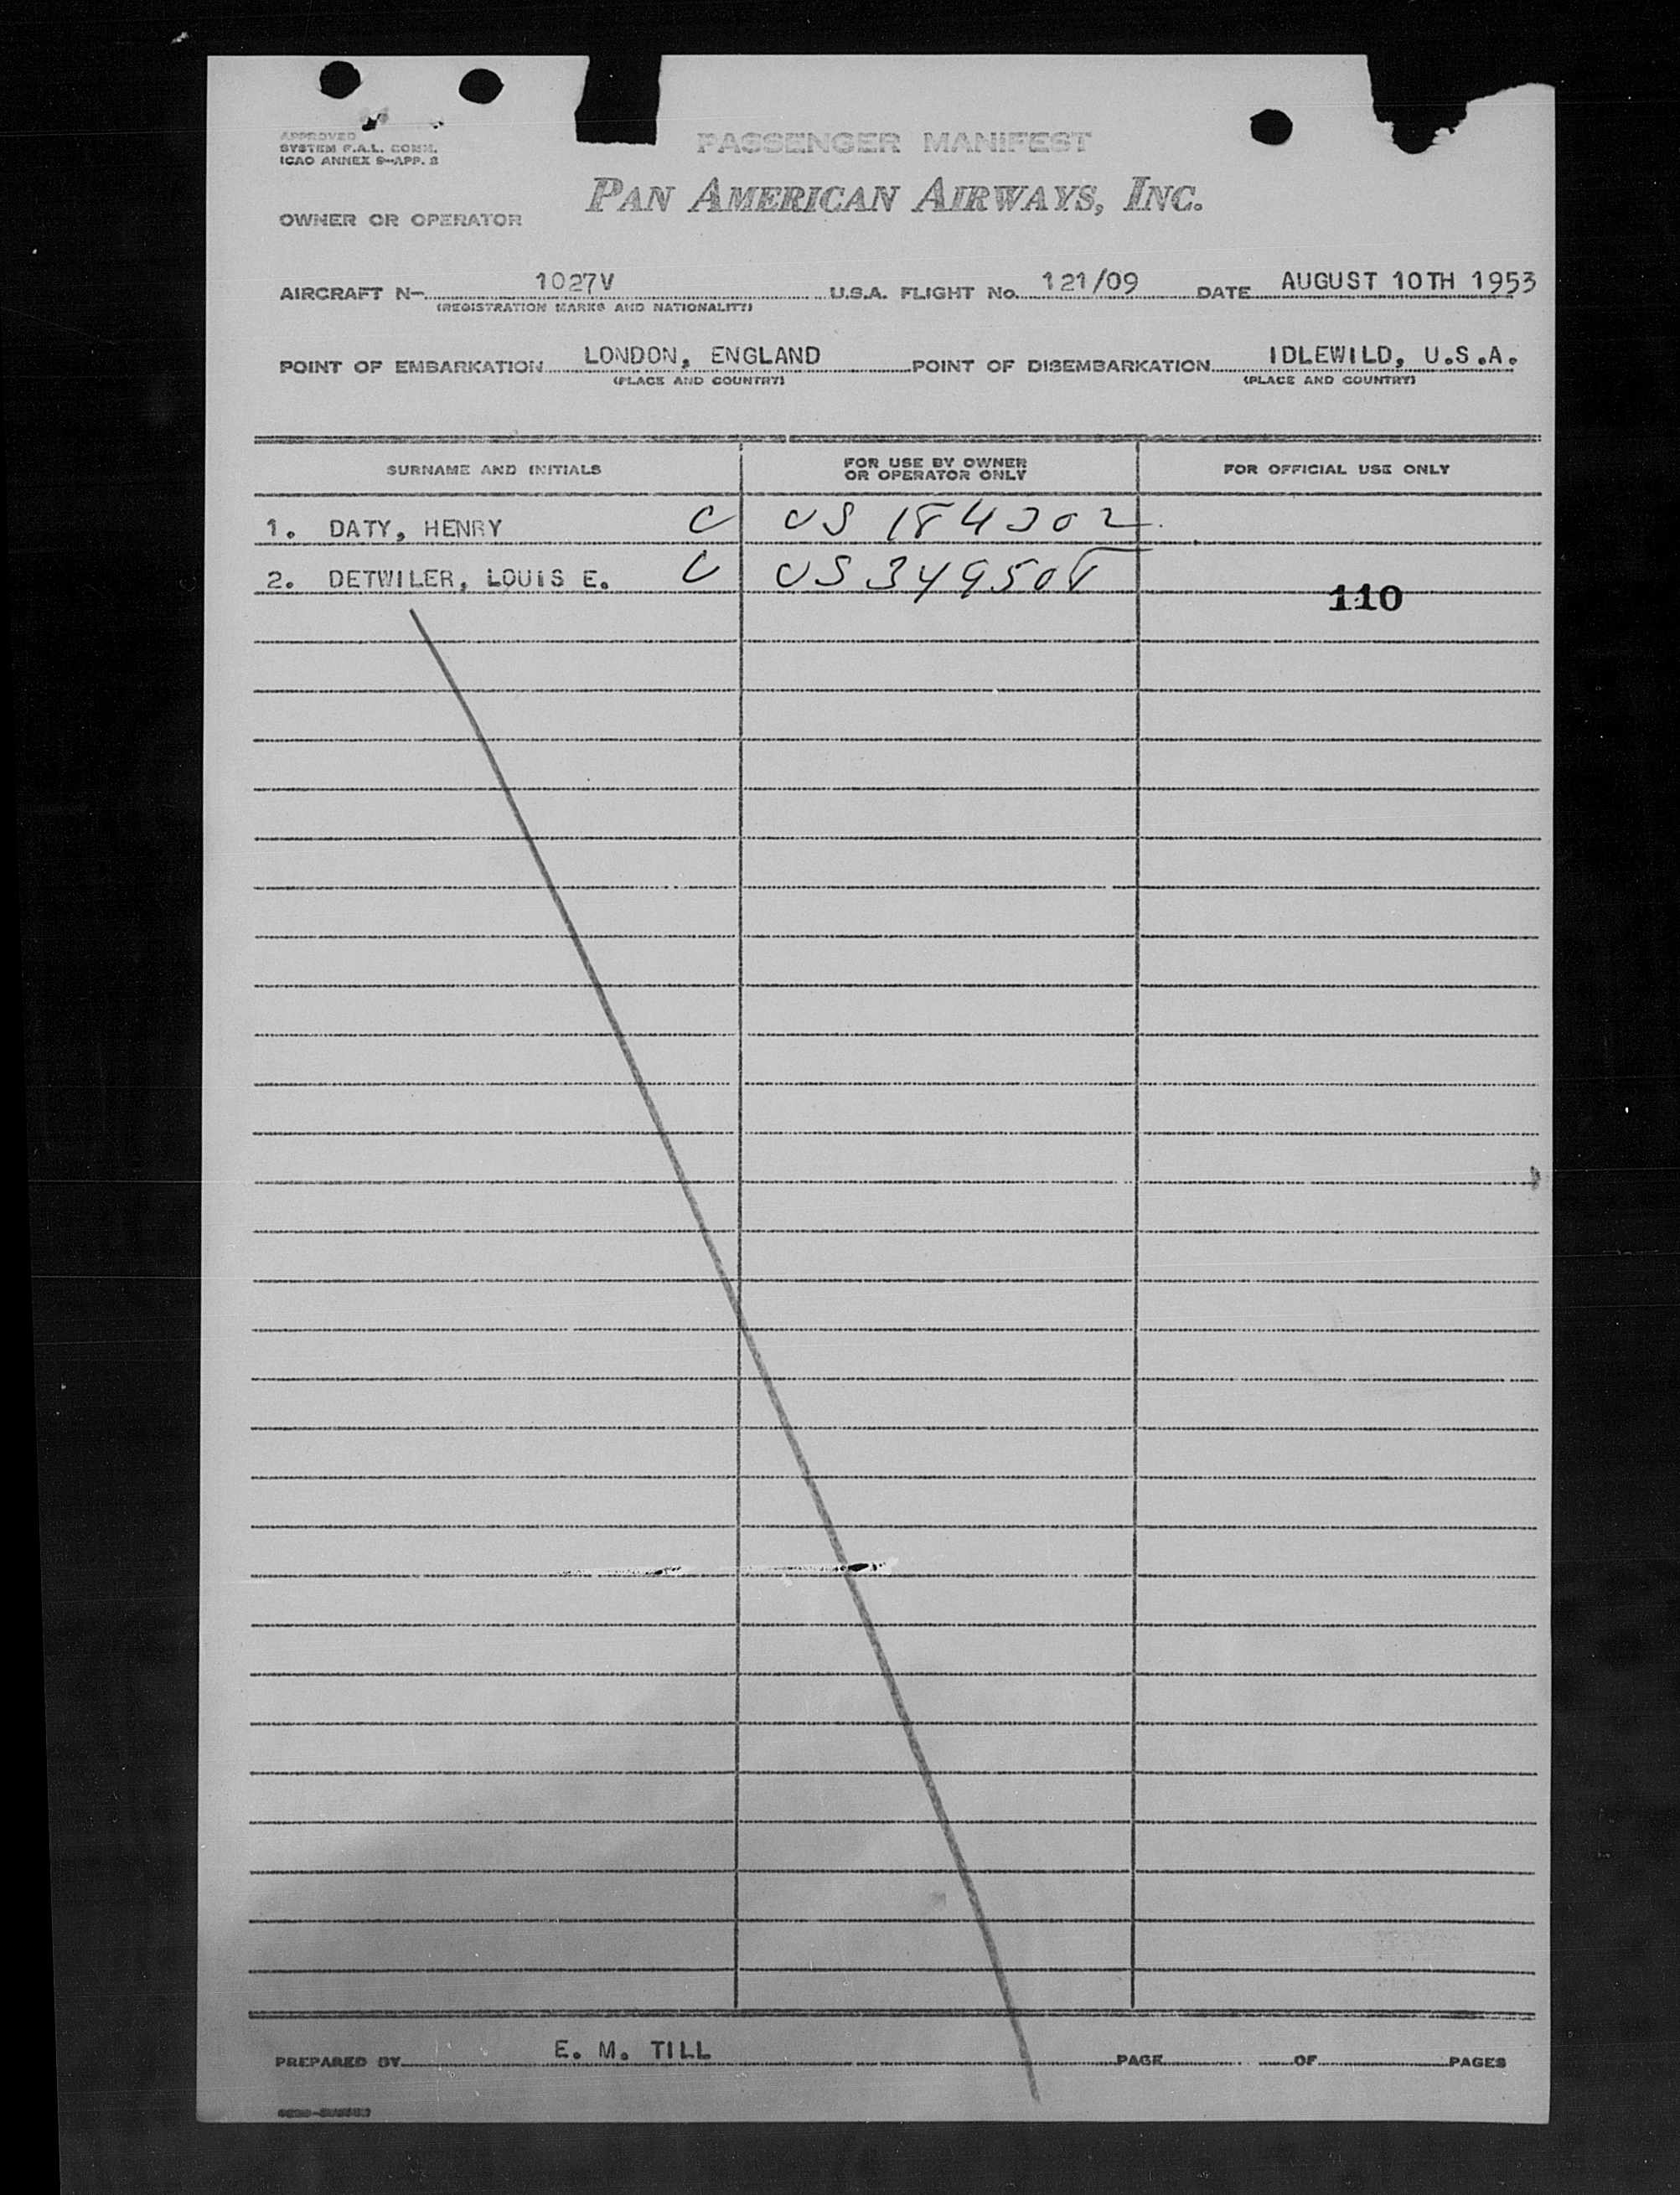 APPROVED
SYSTEM F.A.L. COMM.
ICAO ANNEX 9-APP. 2
PASSENGER MANIFEST
PAN AMERICAN AIRWAYS, INC.
OWNER OR OPERATOR
AIRCRAFT N- 1027V U.S.A. FLIGHT No. 121/09 DATE AUGUST 10TH 1953
(REGISTRATION MARKS AND NATIONALITY)
POINT OF EMBARKATION LONDON, ENGLAND POINT OF DISEMBARKATION IDLEWILD, U.S.A.
(PLACE AND COUNTRY) (PLACE AND COUNTRY)
SURNAME AND INITIALS FOR USE BY OWNER OR OPERATOR ONLY FOR OFFICIAL USE ONLY
1. DATY, HENRY C US 184302
2. DETWILER, LOUIS E. C US 349508
110
PREPARED BY E. M. TILL PAGE OF PAGES